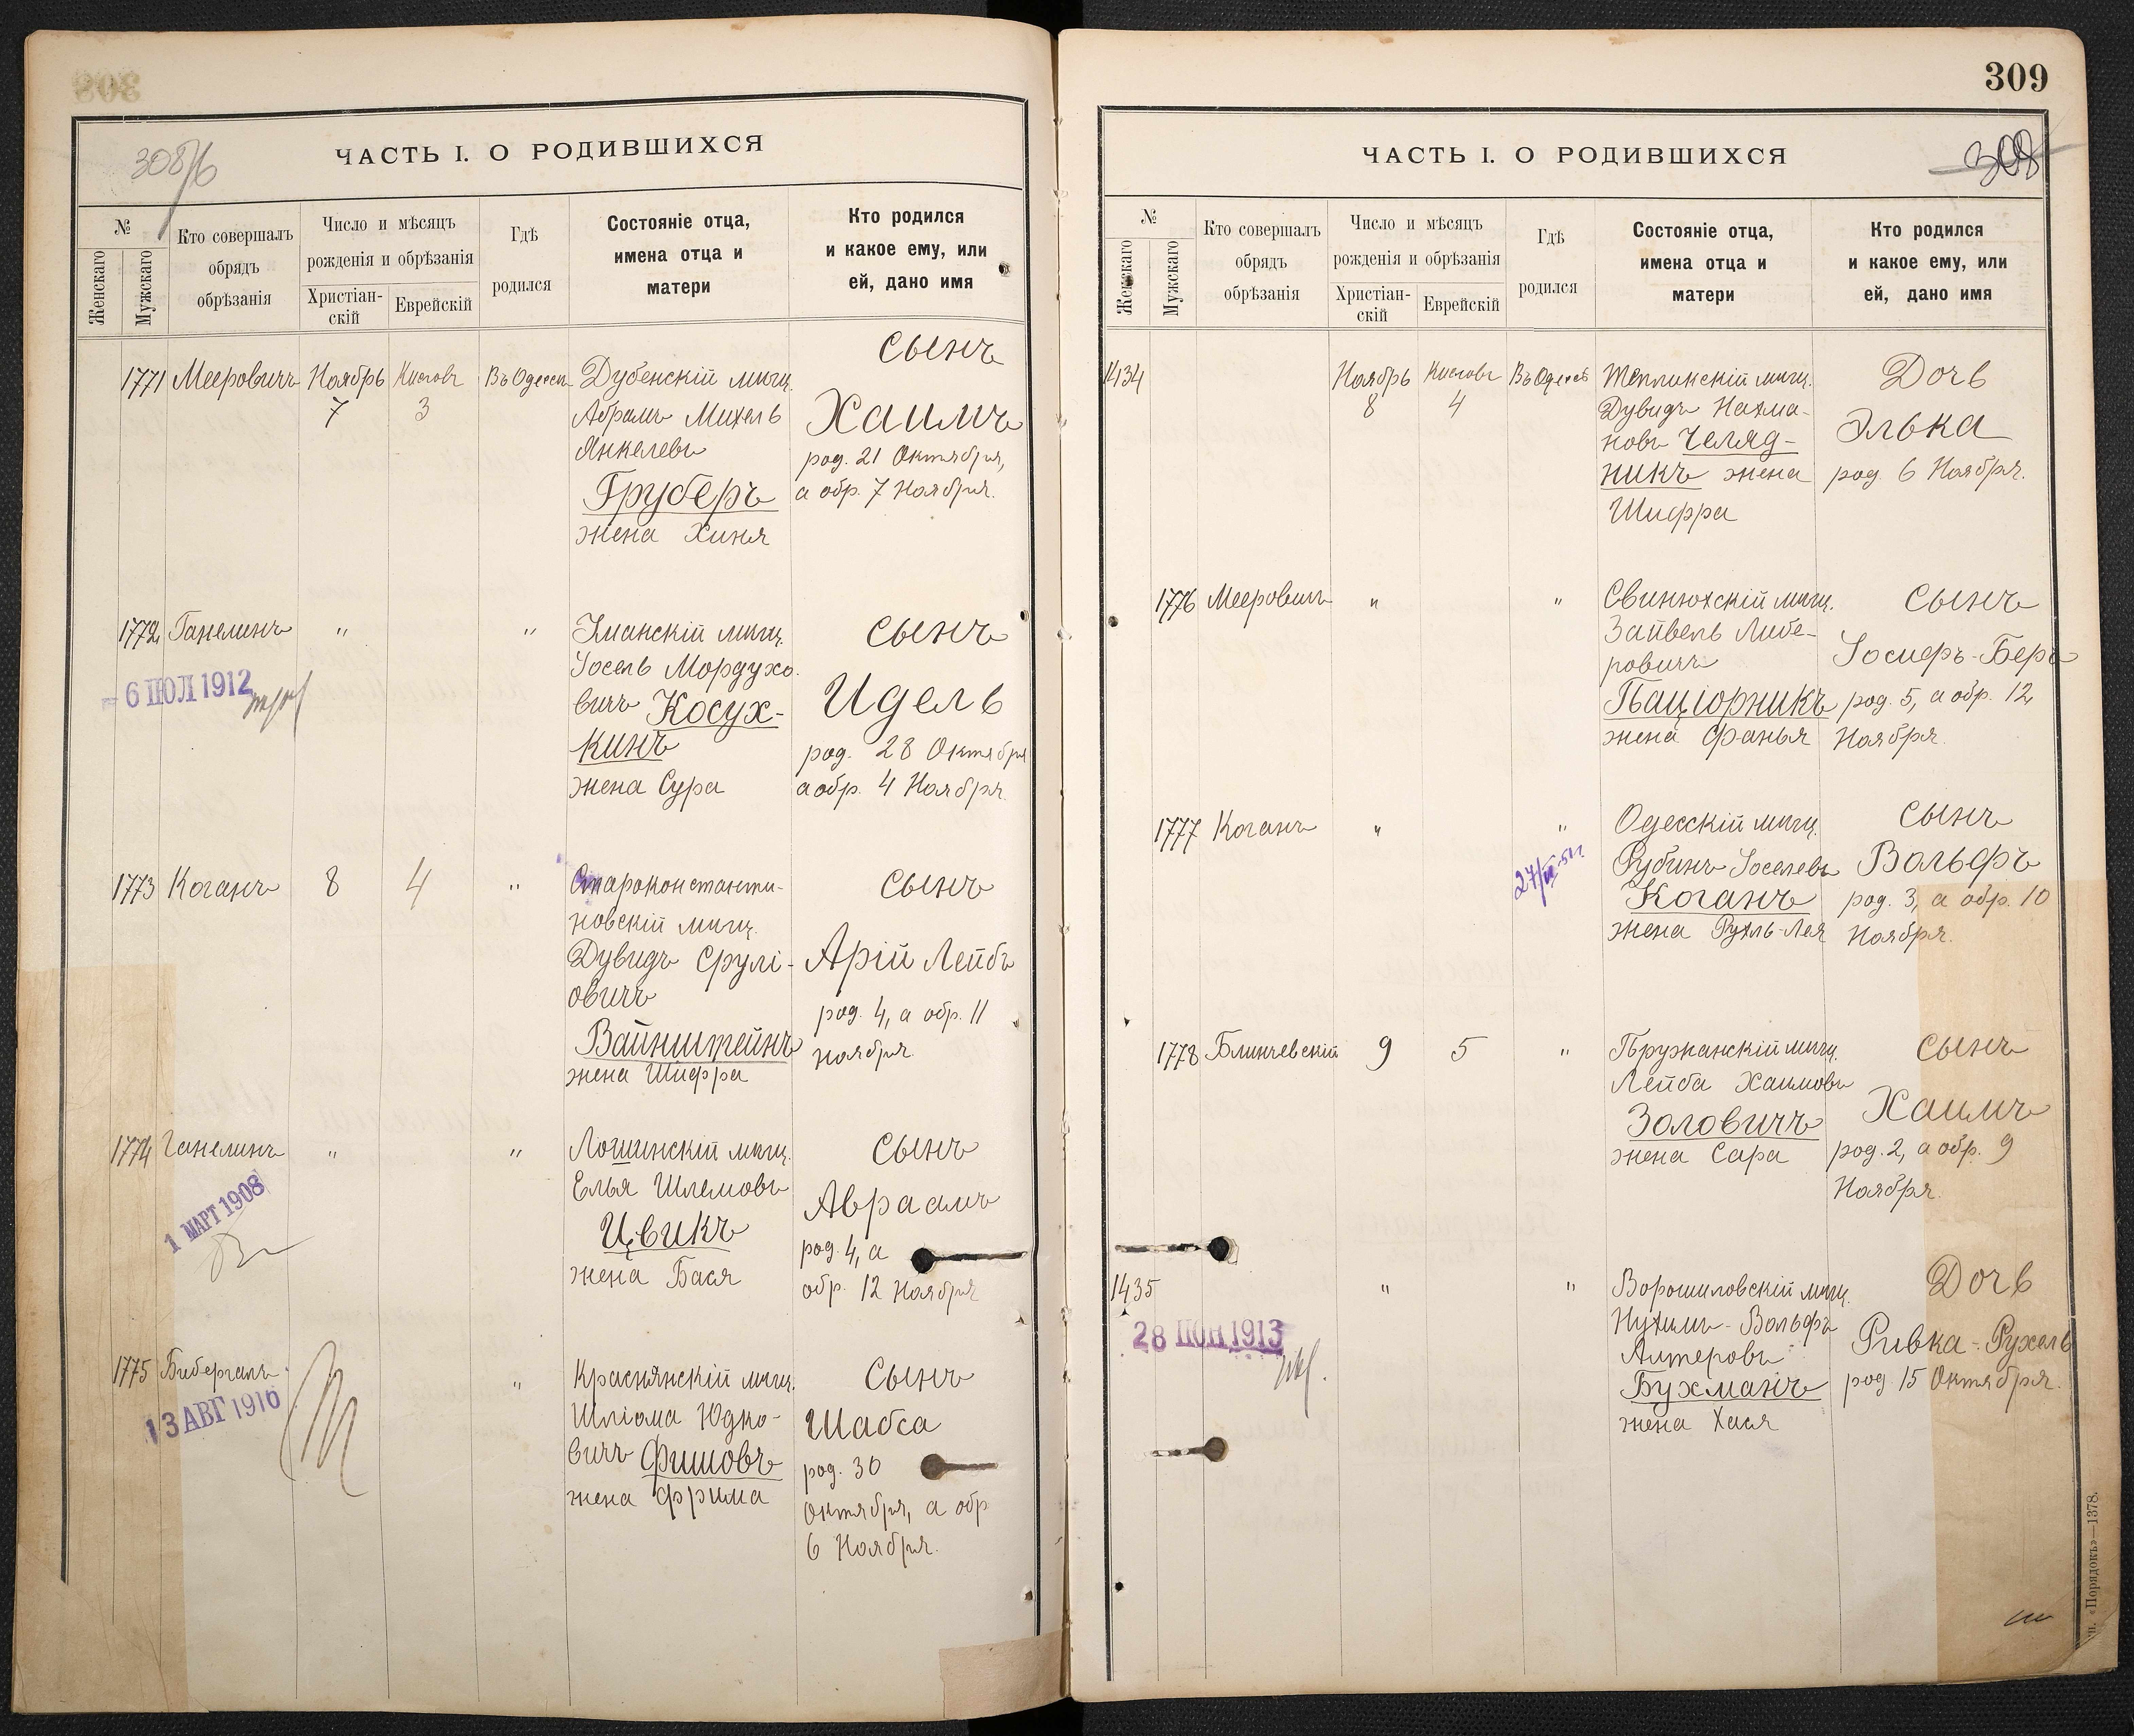 308
ЧАСТЬ I. О РОДИВШИХСЯ
№
Женскаго
Мужскаго
Кто совершалъ
обрядъ
обрѣзанія
Число и мѣсяцъ
рожденія и обрѣзанія
Христіан-
скій
Еврейскій
Гдѣ
родился
Состояніе отца,
имена отца и
матери
Кто родился
и какое ему, или
ей, дано имя
1771 Мееровичъ Ноябрь Кислевъ Въ Одессѣ Дубенскій мѣщ. сынъ
7 3 Абрамъ Михель Хаимъ
Янкелевъ род. 21 Октября,
Груберъ а обр. 7 Ноября.
жена Хиня
1772 Ганелинъ " " Уманскій мѣщ. сынъ
- 6 ІЮЛ 1912
Іосель Мордухо-
вичъ Косух- Идель
кинъ род. 28 Октября
жена Сура а обр. 4 Ноября.
1773 Коганъ 8 4 " Староконстанти- сынъ
новскій мѣщ.
Дувидъ Срулі- Арій Лейбъ
овичъ род. 4, а обр. 11
Вайнштейнъ ноября.
жена Шифра
1774 Ганелинъ " " Логишинскій мѣщ. сынъ
1 МАРТ 1908
Елья Шлемовъ Авраамъ
Цвикъ род. 4, а
жена Бася обр. 12 Ноября
1775 Бибергалъ " Краснянскій мѣщ. сынъ
13 АВГ 1916
Шліома Юдко- Шабса
вичъ Фишовъ род. 30
жена Фрима Октября, а обр
6 Ноября.
309
ЧАСТЬ I. О РОДИВШИХСЯ
308
№
Женскаго
Мужскаго
Кто совершалъ
обрядъ
обрѣзанія
Число и мѣсяцъ
рожденія и обрѣзанія
Христіан-
скій
Еврейскій
Гдѣ
родился
Состояніе отца,
имена отца и
матери
Кто родился
и какое ему, или
ей, дано имя
1434 Ноябрь Кислевъ Въ Одессѣ Тѣплинскій мѣщ. Дочь
8 4 Дувидъ Нахма-
новъ Челяд- Элька
никъ жена род. 6 Ноября.
Шифра
1776 Мееровичъ " " Свинюхскій мѣщ. сынъ
Зайвель Либе-
ровичъ Іосифъ-Беръ
Паціорникъ род. 5, а обр. 12
жена Фанья Ноября.
1777 Коганъ " " Одесскій мѣщ. сынъ
Рубинъ Іоселевъ Вольфъ
Коганъ род. 3, а обр. 10
жена Рухль-Лея Ноября.
1778 Блинчевскій 9 5 " Пружанскій мѣщ. сынъ
Лейба Хаимовъ
Золовичъ Хаимъ
жена Сара род. 2, а обр. 9
Ноября.
1435 " " Ворошиловскій мѣщ. Дочь
28 ІЮН 1913
Нухимъ-Вольфъ
Алтеровъ Ривка-Рухель
Бухманъ род 15 Октября.
жена Хася
«Порядокъ»—1378.